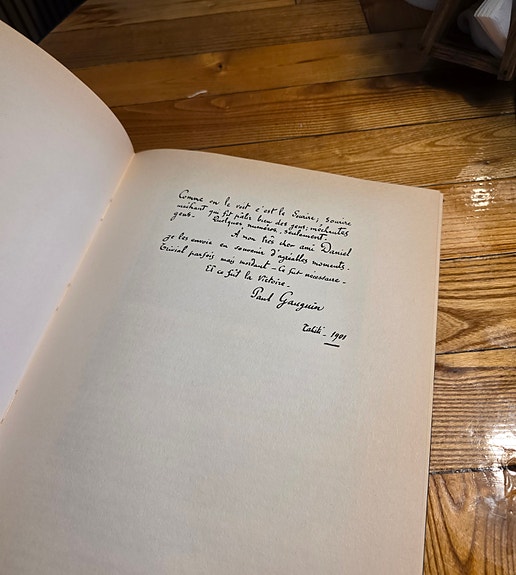 Comme on le voit c'est le Sourire; sourire
méchant qui fit pâlir bien des gens méchantes
gens. Quelques numéros, seulement.
A mon très cher ami Daniel
je les envoie en souvenir d'agréables moments.
Trivial parfois mais mordant - Ce fut nécessaire -
Et ce fut la Victoire -
Paul Gauguin
Tahiti - 1901